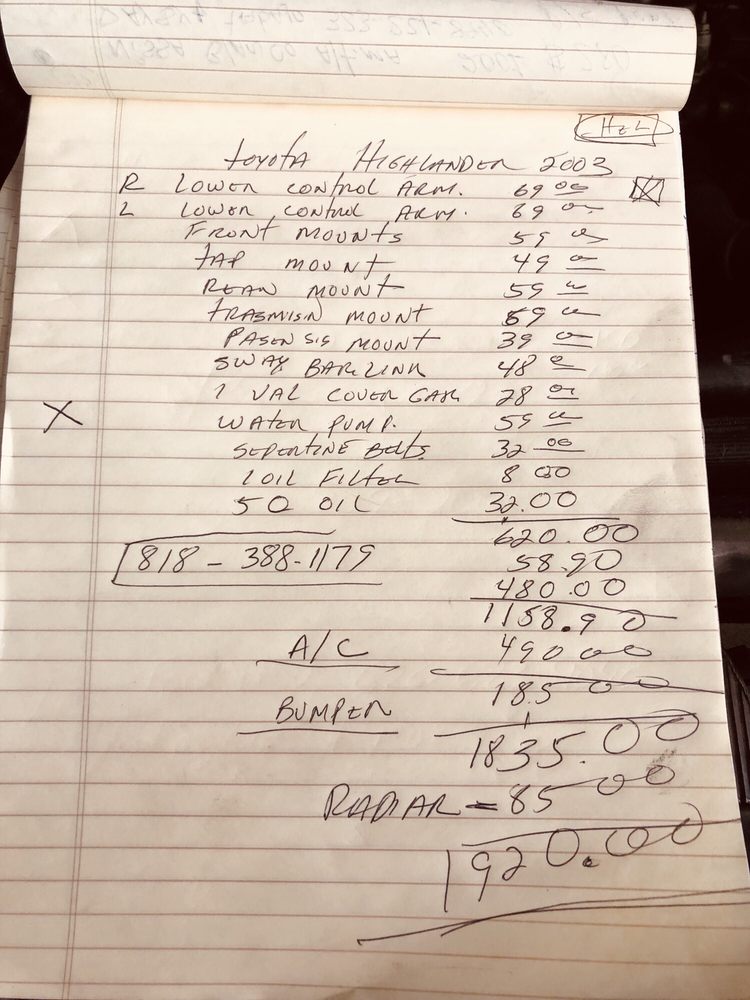 HEL
toyota HIGHLANDER 2003
R LOWER CONTROL ARM. 69 00
L LOWER CONTROL ARM. 69 00
FRONT MOUNTS 59 00
TAP MOUNT 49 00
REAR MOUNT 59 00
TRASMISIN MOUNT 69 00
PASENSIG MOUNT 39 00
SWAY BAR LINK 48 00
1 VAL COVER GASK 28 00
X WATER PUMP. 59 00
SEPERTINE BELTS 32 00
1 OIL FILTER 8 00
5Q OIL 32.00
620.00
818-388-1179 58.90
480.00
1158.90
A/C 490 00
BUMPER 185 00
1835.00
RADIAR = 85 00
1920.00